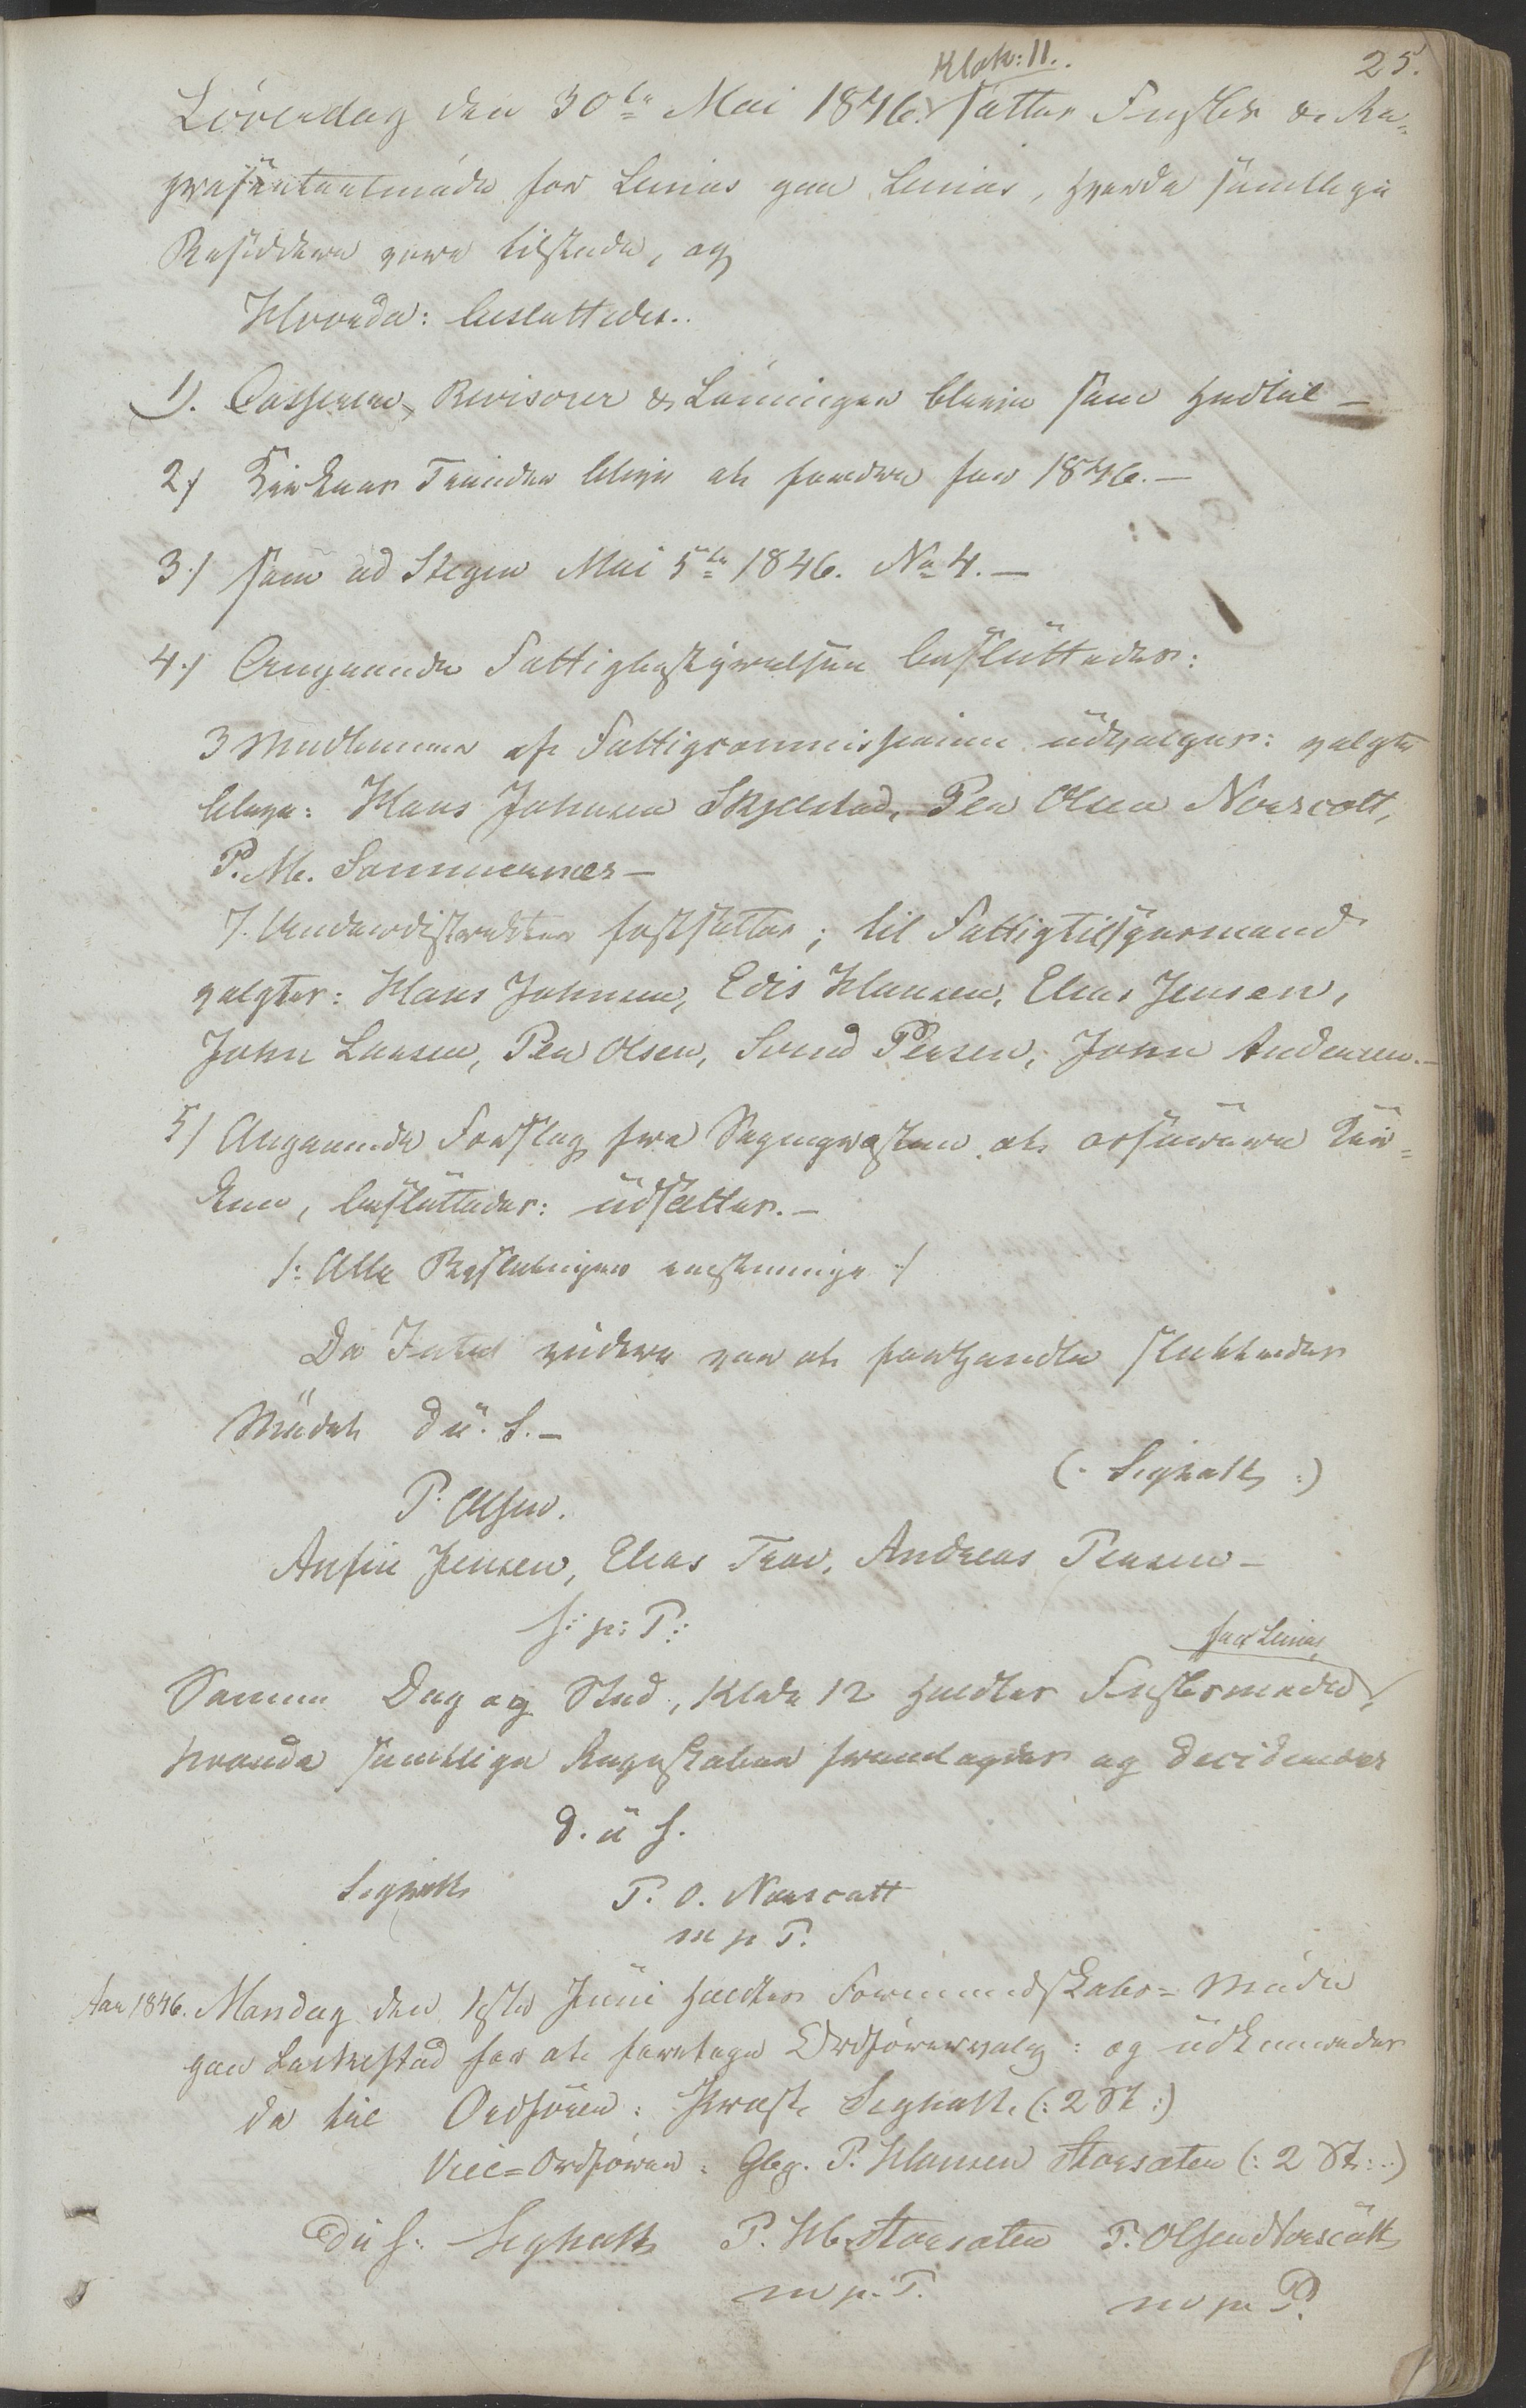 25.
Klok: 11.
Löverdag den 30te Mai 1846. sattes Fmskbs & Re-
præsentantmöde for Lenvig paa Lenvig, hvorda samtlige
Residdere vare tilstede, og
Hvorda: besluttedes..
1). Casserere, Revisorer & Lönninger bleve som Hidtil —
2) Kirkens Tiender blive at fordre for 1846. —
3) som ad Stegen Mai 5te 1846. No 4. —
4) Angaaende Fattigbestyrelsen besluttedes:
3 Medlemmer af Fattigcommissionen udvalgtes: valgte
bleve: Hans Johnsen Skjelstad, Per Olsen Norscott,
P. M. Sommernes —
7. Underdistrikter fastsattes; til Fattigtilsynsmænd
valgtes: Hans Johnsen, Edis Hansen, Elias Jensen,
John Larsen, Per Olsen, Svend Persen, John Andersen. —
5) Angaaende Forslag fra Sognepræsten at assurere Kir-
ken, besluttedes: udsættes. —
/: Alle Beslutninger eenstemmige :/
Da Intet videre var at forhandle sluttedes
Mödet D. u. S. —
(: Sigholt :)
P. Olsen.
Anfin Jensen, Elias Tran, Andreas Persen —
m: p: P:
for Lenvig
Samme Dag og Sted, Klokk 12 holdtes Fmskbsmöde,
hvorda samtlige Regnskaber fremlagdes og decideredes
d. u. s.
Sigholt P. O. Norscott
m p P.
Aar 1846. Mandag den 1ste Juni holdtes Formandskabs-Möde
paa Laukestad for at foretage Ordförervalg: og udkaaredes
da til Ordförer: Provst Sigholt. (: 2 St :)
Vice-Ordförer: Gbg. P. Hansen Storsæten (: 2 St :)
D u S. Sigholt P. H. Storsæten P. Olsen Norscott
m p. P. m p P.